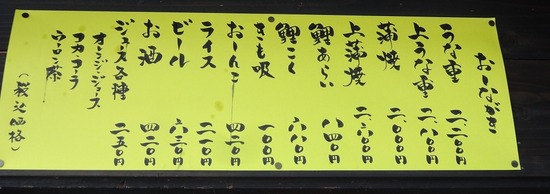 おしながき
うな重 二、二〇〇円
上うな重 二、八〇〇円
蒲焼 二、〇〇〇円
上蒲焼 二、六〇〇円
鯉あらい 八四〇円
鯉こく 六八〇円
きも吸 一〇〇円
おしんこ 四二〇円
ライス 二一〇円
ビール 六三〇円
お酒 四二〇円
ジュース各種 二五〇円
オレンジジュース
コカコーラ
ウーロン茶
(税込価格)